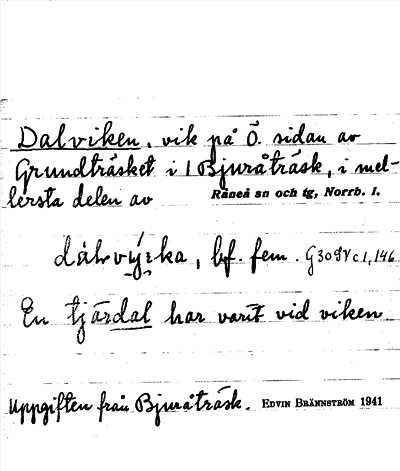 Dalviken, vik på Ö. sidan av
Grundträsket i l Bjuråträsk, i mel-
lersta delen av Råneå sn och tg, Norrb. l.
bf. fem. G 30 IV c 1, 146
En tjärdal har varit vid viken.
Uppgiften från Bjuråträsk. EDVIN BRÄNNSTRÖM 1941